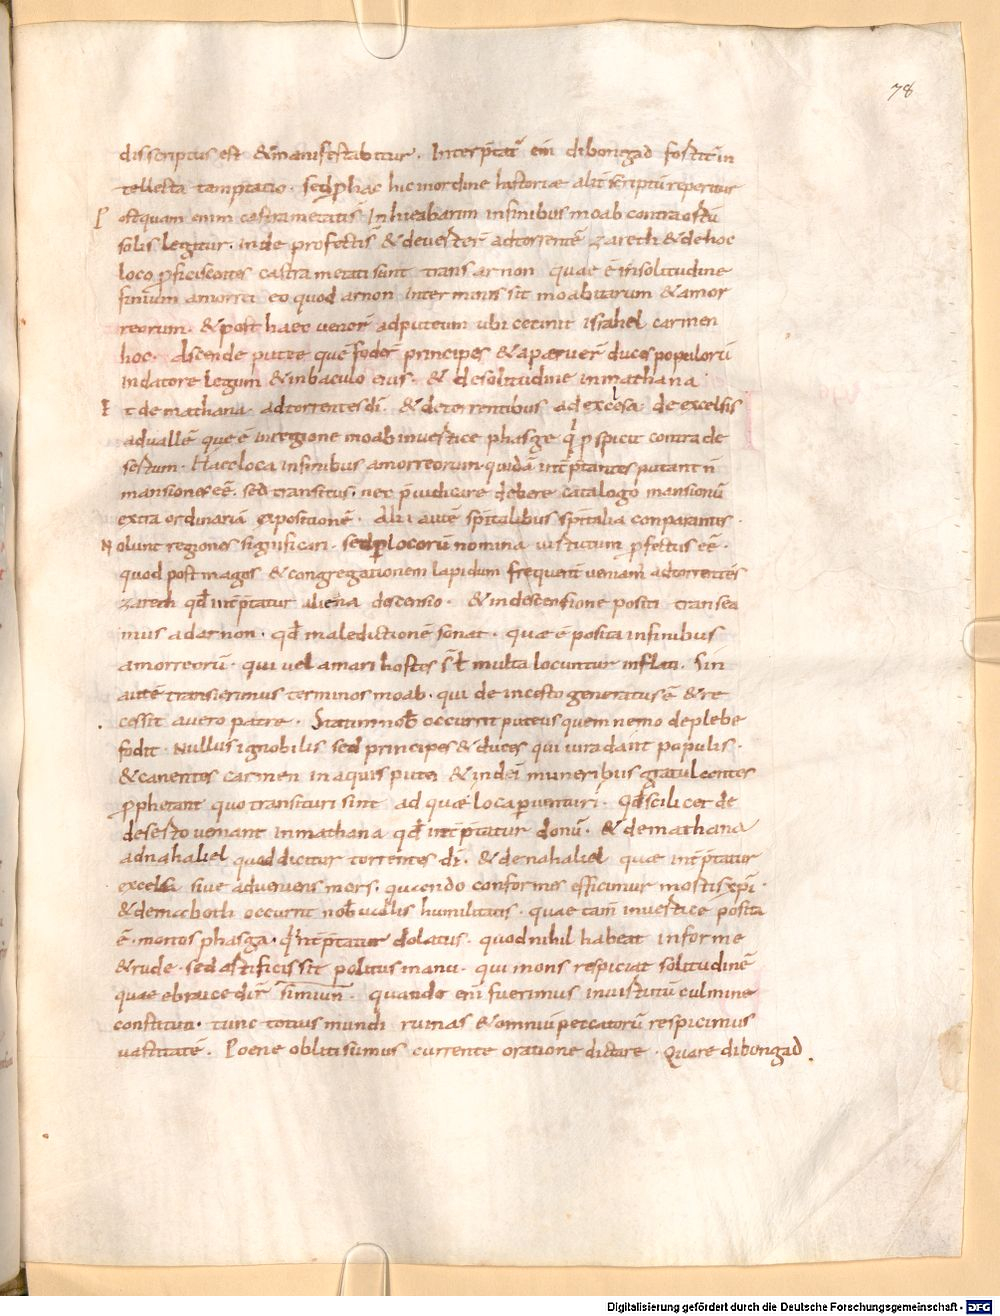 78
discriptus est &manifestabitur. Interp̄tat̄ eni dibongad fortit̄ in
tellecta temptatio. sed p̱ haec hic in ordine historiae alit̄ scriptū reperitur
Postquam enim castra metatis In hieabarim in finibus moab contra ortū
solis legitur. inde profectis & deuerter̄ ad torrentē zareth & de hoc
loco ꝓficiscentes castra metati sunt trans arnon quae ē in solitudine
finium amorrei eo quod arnon inter minus sit moabitarum & amor
reorum. & post haec uener̄ ad puteum ubi cecinit israhel carmen
hoc. Ascende putee quē foder̄ principes & aparuer̄ duces populorū
In datore legum & in baculo eius. & de solitudine in mathana
Et de mathana. ad torrentes dī. & de torrentibus ad excelsa de excelsis
ad uallē que ē in regione moab in uertice phasge q' p̱spicit contra de
sertum. Haec loca in finibus amorreorum quidā int̄p̄tantes putant n̄
mansiones eē. sed transitus. nec p̄iudicare debere catalogo mansionū
extra ordinariā expositionē. Alii autē sp̄italibus sp̄italia conparantes.
Nolunt regiones significari. sed p̱ locorū nomina uirtutum ꝓfectus eē.
quod post magos & congregationem lapidum frequent̄ ueniam̄ ad torrentēs
zareth qđ int̄p̄tatur aliena descensio. & in descensione positi transea
mus ad arnon. qđ maledictionē sonat. quae ē posita in finibus
amorreorū. qui uel amari hostes sł multa locuntur inflati. Sin
autē transierimus terminos moab. qui de incesto generatus ē & re
cessit a uero patre. Statim nob̄ occurrit puteus quem nemo de plebe
fodit. Nullus ignobilis sed principes & duces qui iura dant populis.
& canentes carmen in aquis putei & in dei muneribus gratulantes
ꝓphetant quo transituri sint ad quae loca p̱uenturi. Qđ scilicet de
deserto ueniant in mathana qđ int̄p̄tatur donū. & de mathana
ad nahaliel quod dicitur torrentes dī. & de nahaliel quae int̄p̄tatur
excelsa siue adueniens mors. quando conformes efficimur mortis xp̄i.
& de maboth occurrit nob̄ uallis humilitatis. quae tam̄ in uertice posita
ē. montis phasga. q' int̄p̄tatur dolatus. quod nihil habeat informe
& rude. sed artificis sit politus manu. qui mons respiciat solitudinē
quae ebraice dir̄ simiun̄. quando eni fuerimus in uirtutū culmine
constituti. tunc totius mundi ruinas & omniū peccatorū respicimus
uastitatē. Poene obliti sumus currente oratione dictare. Quare dibongad.
Digitalisierung gefördert durch die Deutsche Forschungsgemeinschaft - DFG